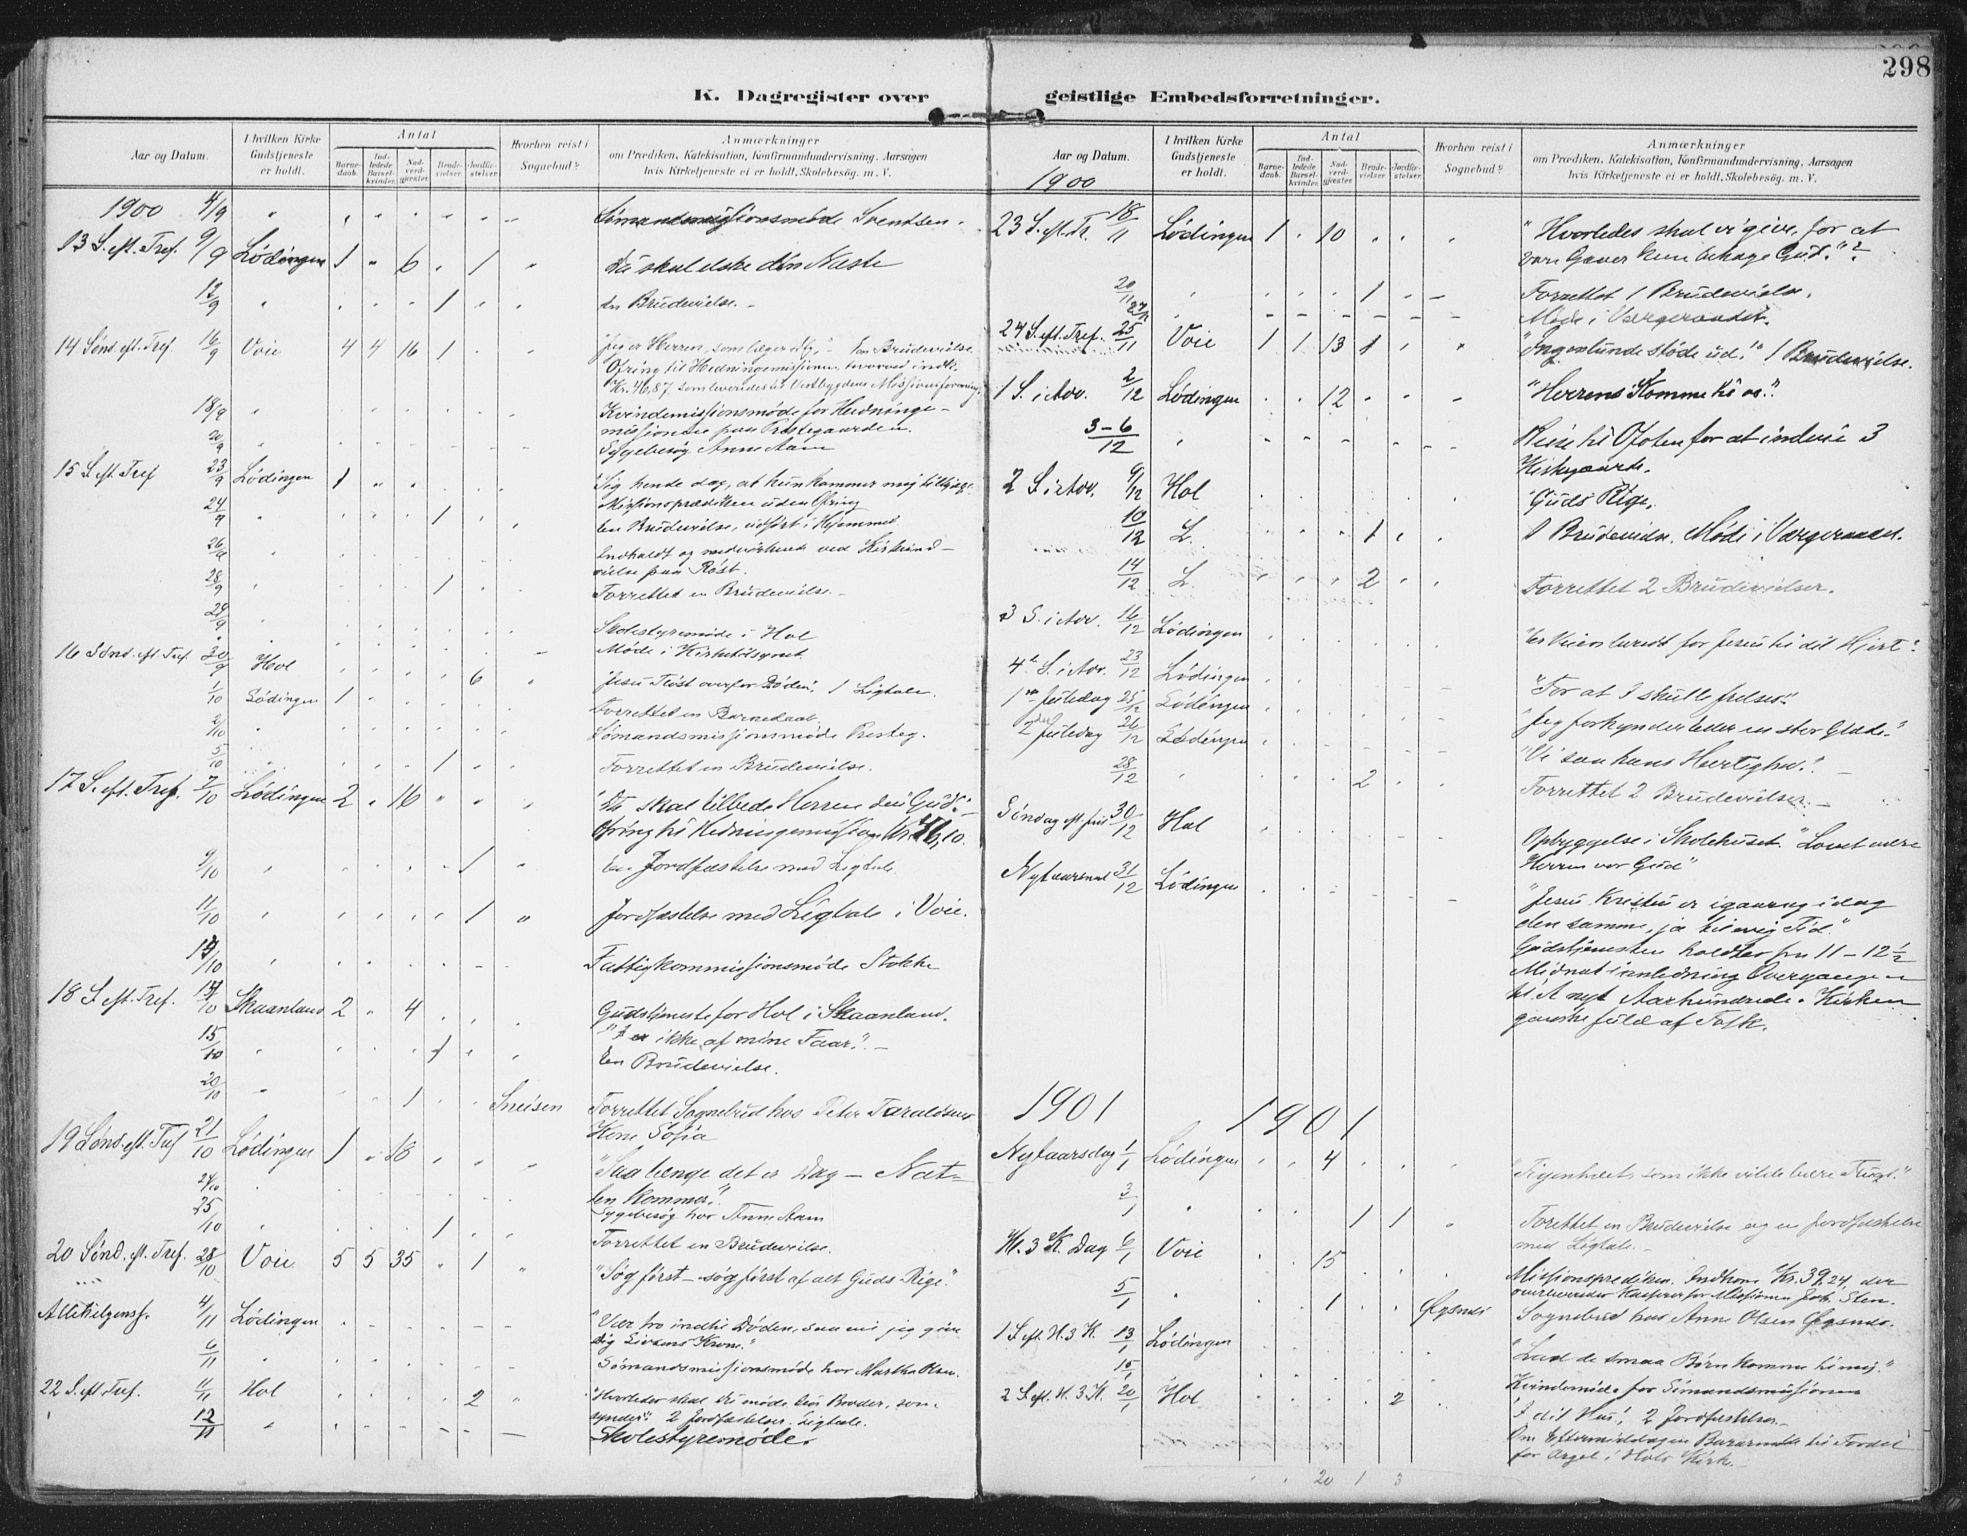 298
K. Dagregister over
Aar og Datum.
I hvilken Kirke Gudstjeneste er holdt.
Antal
Barne-daab.
Ind-ledede Barsel-kvinder.
Nad-verd-gjæster.
Brude-vielser.
Jordfæ-stelser.
Hvorhen reist i Sognebud?
Anmærkninger
om Prædiken, Katekisation, Konfirmandundervisning, Aarsagen
hvis Kirketjeneste ei er holdt, Skolebesøg. m. V.
1900 4/9 Sømandsmissionsmøde
13 S. eft. Tref. 9/9 Lødingen 1 6 1 Du skal elske din Næste
12/9 1 En Brudevielse.
14 Sønd. eft. Tref. 16/9 Voie 4 4 16 1 Jeg er Herren, som læger dig. En Brudevielse
Ofring til Hedningemissionen, hvorved indk.
Kr. 46,87 som leveredes til Vestbygdens Missionsforening.
18/9 Kvindemissionsmøde for Hedninge-
missionen paa Prestegaarden.
20/9 Sygebesøg Anne Aam
15 S. eft. Tref 23/9 Lødingen 1
Missionsprædiken uden Ofring
24/9 1 En Brudevielse, udført i Hjemmet
26/9 Indholdt og medvirkende ved Kirkeind-
vielse paa Røst.
28/9 1 Forrettet en Brudevielse
29/9 Skolestyremøde i Hol
Møde i Kirketilsynet.
16 Sønd. eft. Tref. 30/9 Hol 6 Jesu Trøst overfor Døden, 1 Ligtale.
1/10 Lødingen 1 Forrettet en Barnedaab.
2/10 Sømandsmissionsmøde Presteg.
5/10 1 Forrettet en Brudevielse.
17 S. eft. Tref. 7/10 Lødingen 2 16 "Du skal tilbede Herren din Gud"
Ofring til Hedningemissionen Kr. 46,10.
9/10 1 En Jordfæstelse med Ligtale
11/10 1 Jordfæstelse med Ligtale i Voie.
/10 Fattigkommissionsmøde Stokke
18 S. eft. Tref. 14/10 Skaanland 2 4 Gudstjeneste for Hol i Skaanland.
"I er ikke af mine Faar."
15/10 1 En Brudevielse.
20/10 1 Sneisen Forrettet Sognebud hos Peter Taraldsens
Kone Sofia
19 Sønd. eft. Tref 21/10 Lødingen 1 18 "Saa længe det er Dag – Nat-
ten kommer."
24/10 Sygebesøg hos Anne Aam
25/10 1 Forrettet en Brudevielse.
20 Sønd. eft. Tref. 28/10 Voie 5 5 35 1 "Søg først – søg først af alt Guds Rige."
Allehelgensf. 4/11 Lødingen "Vær tro indtil Døden, saa vil jeg give
dig Livsens Krone."
6/11 Sømandsmissionsmøde hos Martha Olsen.
22 S. eft. Tref. 11/11 Hol 2 "Hvorledes skal vi møde vor Broder, som
synder". 2 Jordfæstelser. Ligtale.
12/11 Skolestyremøde.
geistlige Embedsforretninger.
Aar og Datum.
1900
I hvilken Kirke Gudstjeneste er holdt.
Antal
Barne-daab.
Ind-ledede Barsel-kvinder.
Nad-verd-gjæster.
Brude-vielser.
Jordfæ-stelser.
Hvorhen reist i Sognebud?
Anmærkninger
om Prædiken, Katekisation, Konfirmandundervisning, Aarsagen
hvis Kirketjeneste ei er holdt, Skolebesøg. m. V.
23 S. eft. Tr. 18/11 Lødingen 1 10 "Hvorledes skal vi give, for at
vore Gaver kan behage Gud."?
20/11 1 Forrettet 1 Brudevielse.
Møde i Værgeraadet.
24 S. eft. Tref. 25/11 Voie 1 1 13 1 "Ingenlunde støde ud." 1 Brudevielse.
1 S. i Adv. 2/12 Lødingen 12 "Herrens Komme til os."
3-6/12 Reise til Ofoten for at indvie 3
Kirkegaarde.
2 S. i Adv. 9/12 Hol "Guds Rige,
10/12 L. 1 1 Brudevielse. Møde i Værgeraadet.
14/12 L. 2 Forrettet 2 Brudevielser.
3 S. i Adv. 16/12 Lødingen "Er Veien beredt for Jesus til dit Hjerte"
4de S. i Adv. 23/12 Lødingen "For at I skulle frelses."
1ste Juledag 25/12 Lødingen "Jeg forkynder Eder en stor Glæde."
2den Juledag 26/12 Lødingen "Vi saa hans Herlighed."
28/12 2 Forrettet 2 Brudevielser.
Søndag eft. Jul 30/12 Hol Opbyggelse i Skolehuset. "Lovet være
Herren vor Gud"
Nytaarsnat 31/12 Lødingen "Jesus Kristus er igaar og idag
den samme, ja til evig Tid."
Gudstjenesten holdtes fra 11 – 12 1/2
Midnat i anledning Overgangen
til et nyt Aarhundrede. Kirken
ganske fuld af Folk.
1901 1901
Nytaarsdag 1/1 Lødingen 4 "Figentræet, som ikke vilde bære Frugt."
3/1 1 1 Forrettet en Brudevielse og en Jordfæstelse
med Ligtale.
H. 3 K. Dag 6/1 Voie 15 Missionsprediken. Indkom Kr. 39,24, der
overleveredes Kasserer for Missionen Joh. Sten.
5/1 1 Øksnes Sognebud hos Anne Olsen Øksnes.
1 S. eft. H. 3 K. 13/1 Lødingen "Lad de smaa Børn komme til mig."
15/1 Kvindemøde for Sømandsmissionen
2 S. eft. H. 3 K. 20/1 Hol 2 "I dit Hus", 2 Jordfæstelser.
Om Eftermiddagen til Fordel
for Orgel i Hols Kirke.
20 1 3